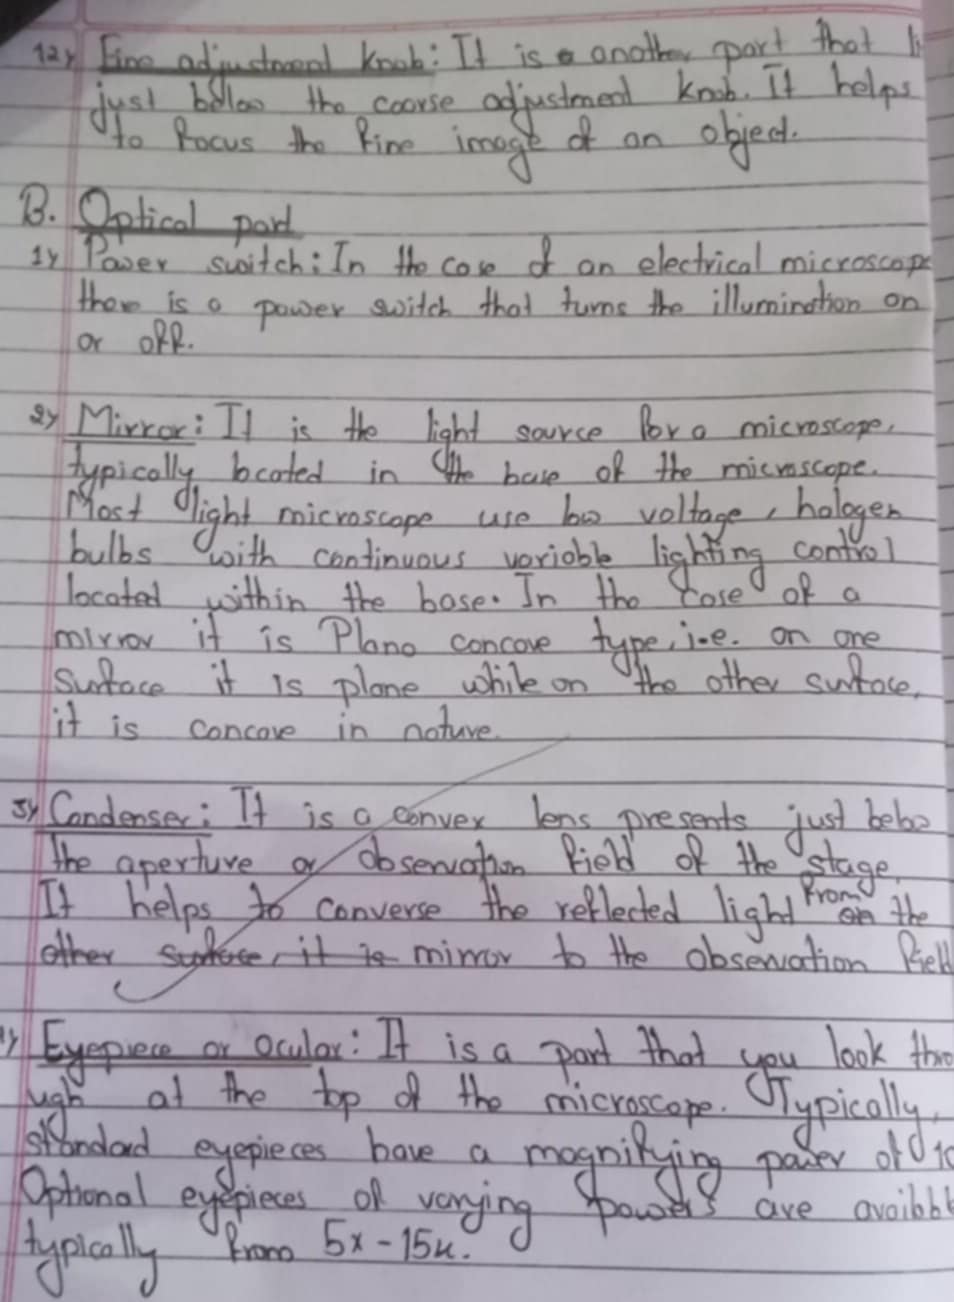 12) Fine adjustment knob: It is a another part that li
just below the coarse adjustment knob. It helps
to focus the fine image of an object.
B. Optical part
1) Power switch: In the case of an electrical microscope
there is a power switch that turns the illumination on
or off.
2) Mirror: It is the light source for a microscope,
typically located in the base of the microscope.
Most light microscope use low voltage, halogen
bulbs with continuous variable lighting control
located within the base. In the case of a
mirror it is Plano concave type, i.e. on one
surface it is plane while on the other surface,
it is concave in nature.
3) Condenser: It is a convex lens presents just below
the aperture or observation field of the stage.
It helps to converse the reflected light from on the
other surface, it is mirror to the observation field
4) Eyepiece or Ocular: It is a part that you look thro
ugh at the top of the microscope. Typically,
standard eyepieces have a magnifying power of 10
Optional eyepieces of varying powers are availabl
typically from 5x - 15x.